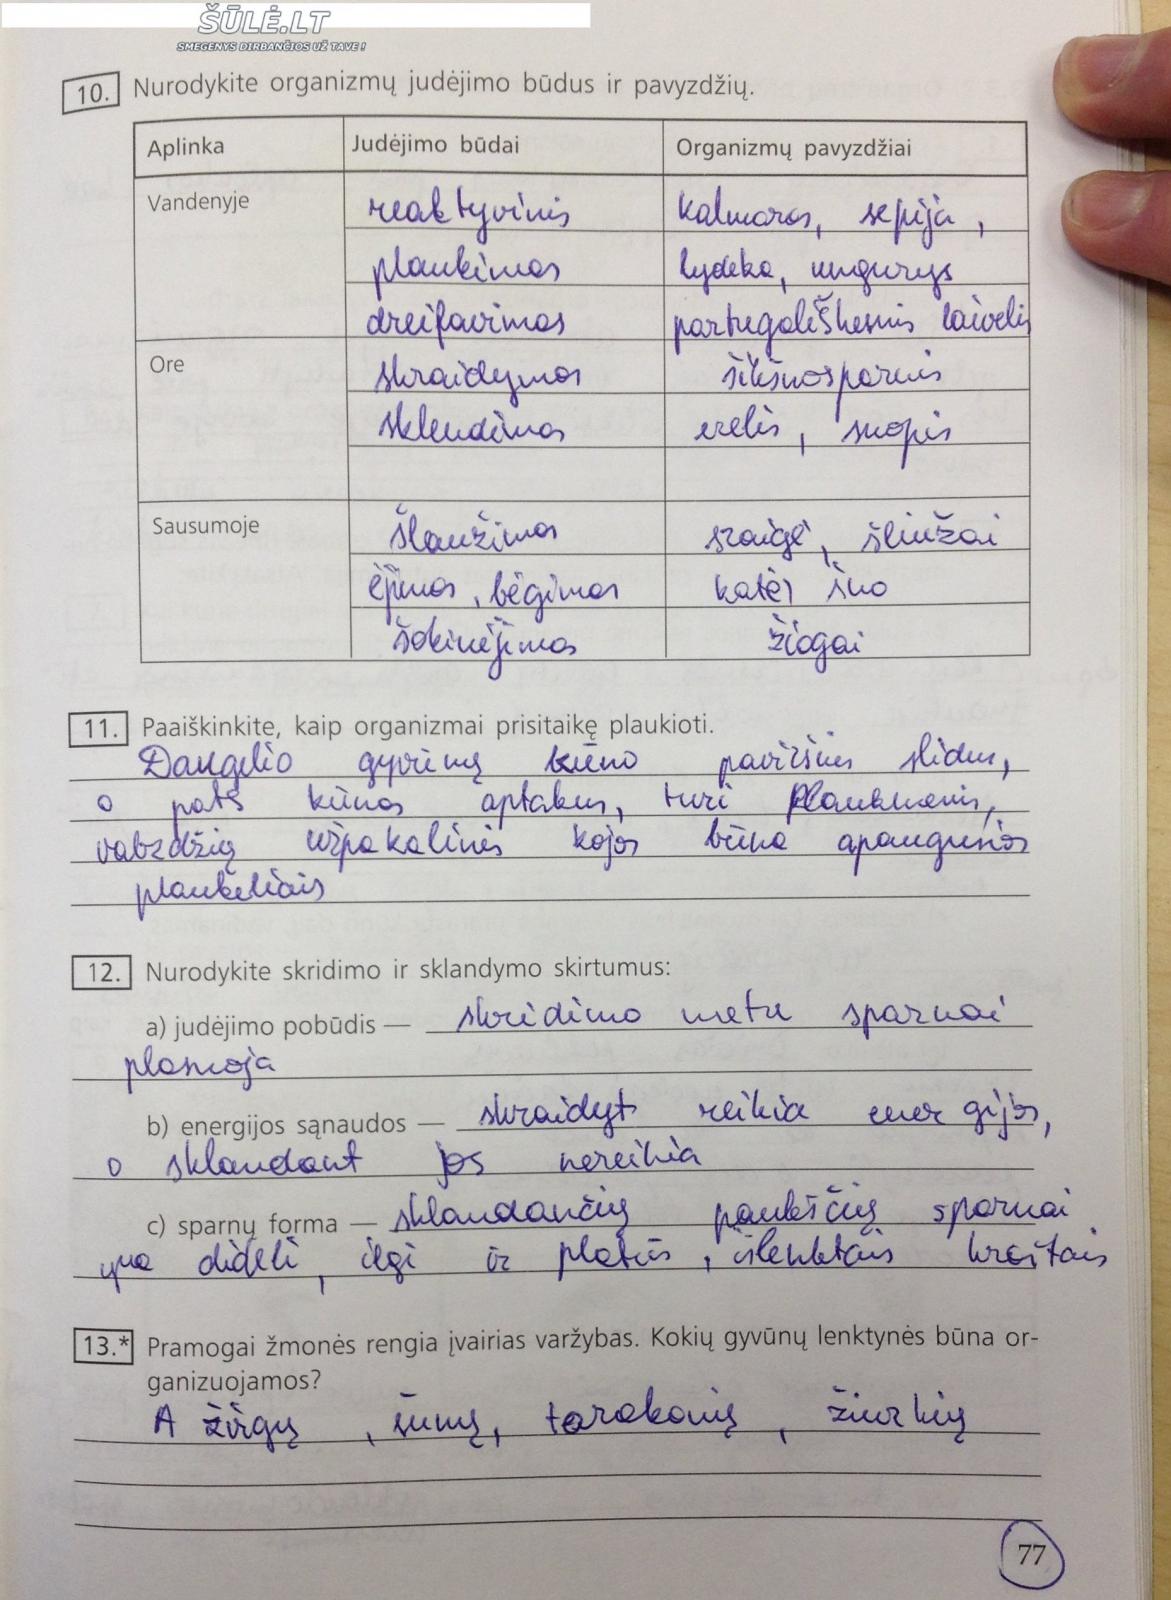 ŠŪLĖ.LT
SMEGENYS DIRBANČIOS UŽ TAVE!
10. Nurodykite organizmų judėjimo būdus ir pavyzdžių.
Aplinka Judėjimo būdai Organizmų pavyzdžiai
Vandenyje reaktyvinis kalmaras, sepija,
plaukimas lydeka, ungurys
dreifavimas portugališkasis laivelis
Ore skraidymas šikšnosparnis
sklendimas erelis, suopis
Sausumoje šliaužimas sraigė, šliužai
ėjimas, bėgimas katė, šuo
šokinėjimas žiogai
11. Paaiškinkite, kaip organizmai prisitaikę plaukioti.
Daugelio gyvūnų kūno paviršius slidus,
o pats kūnas aptakus, turi plaukmenis,
vabzdžių užpakalinės kojos būna apaugusios
plaukeliais
12. Nurodykite skridimo ir sklandymo skirtumus:
a) judėjimo pobūdis — skridimo metu sparnai
plasnoja
b) energijos sąnaudos — skraidyt reikia energijos,
o sklandant jos nereikia
c) sparnų forma — sklandančių paukščių sparnai
yra dideli, ilgi ir platūs, išlenktais kraštais
13.* Pramogai žmonės rengia įvairias varžybas. Kokių gyvūnų lenktynės būna or-
ganizuojamos?
A žirgų, šunų, tarakonų, žiurkių
77